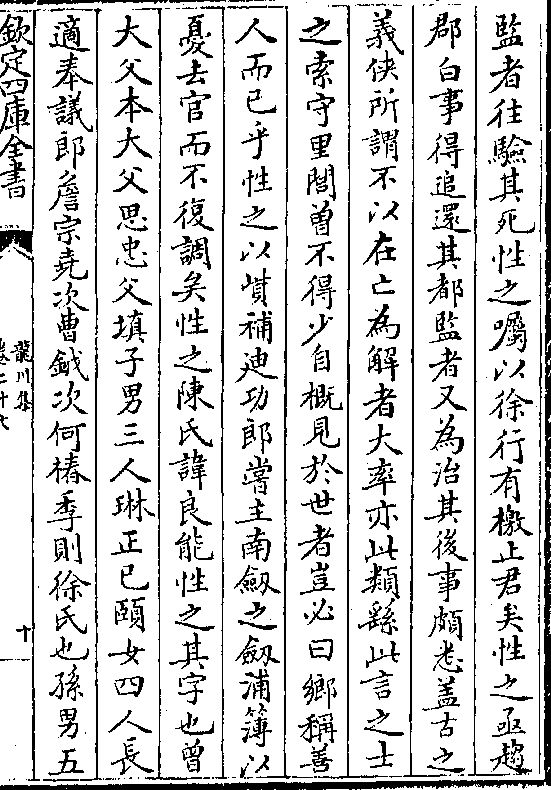 監者往驗其死性之囑以徐行有檄止君矣性之亟趨
郡白事得追還其都監者又為治其後事頗悉蓋古之
義俠所謂不以在亡為解者大率亦此類繇此言之士
之索守里閭曽不得少自概見於世者豈必曰鄉稱善
人而已乎性之以貲補廸功郎嘗主南劔之劔浦簿以
憂去官而不復調矣性之陳氏諱良能性之其字也曾
大父本大父思忠父填子男三人琳正已頤女四人長
適奉議郎詹宗堯次曹鉞次何椿季則徐氏也孫男五
欽定四庫全書
龍川集
卷二十六
十